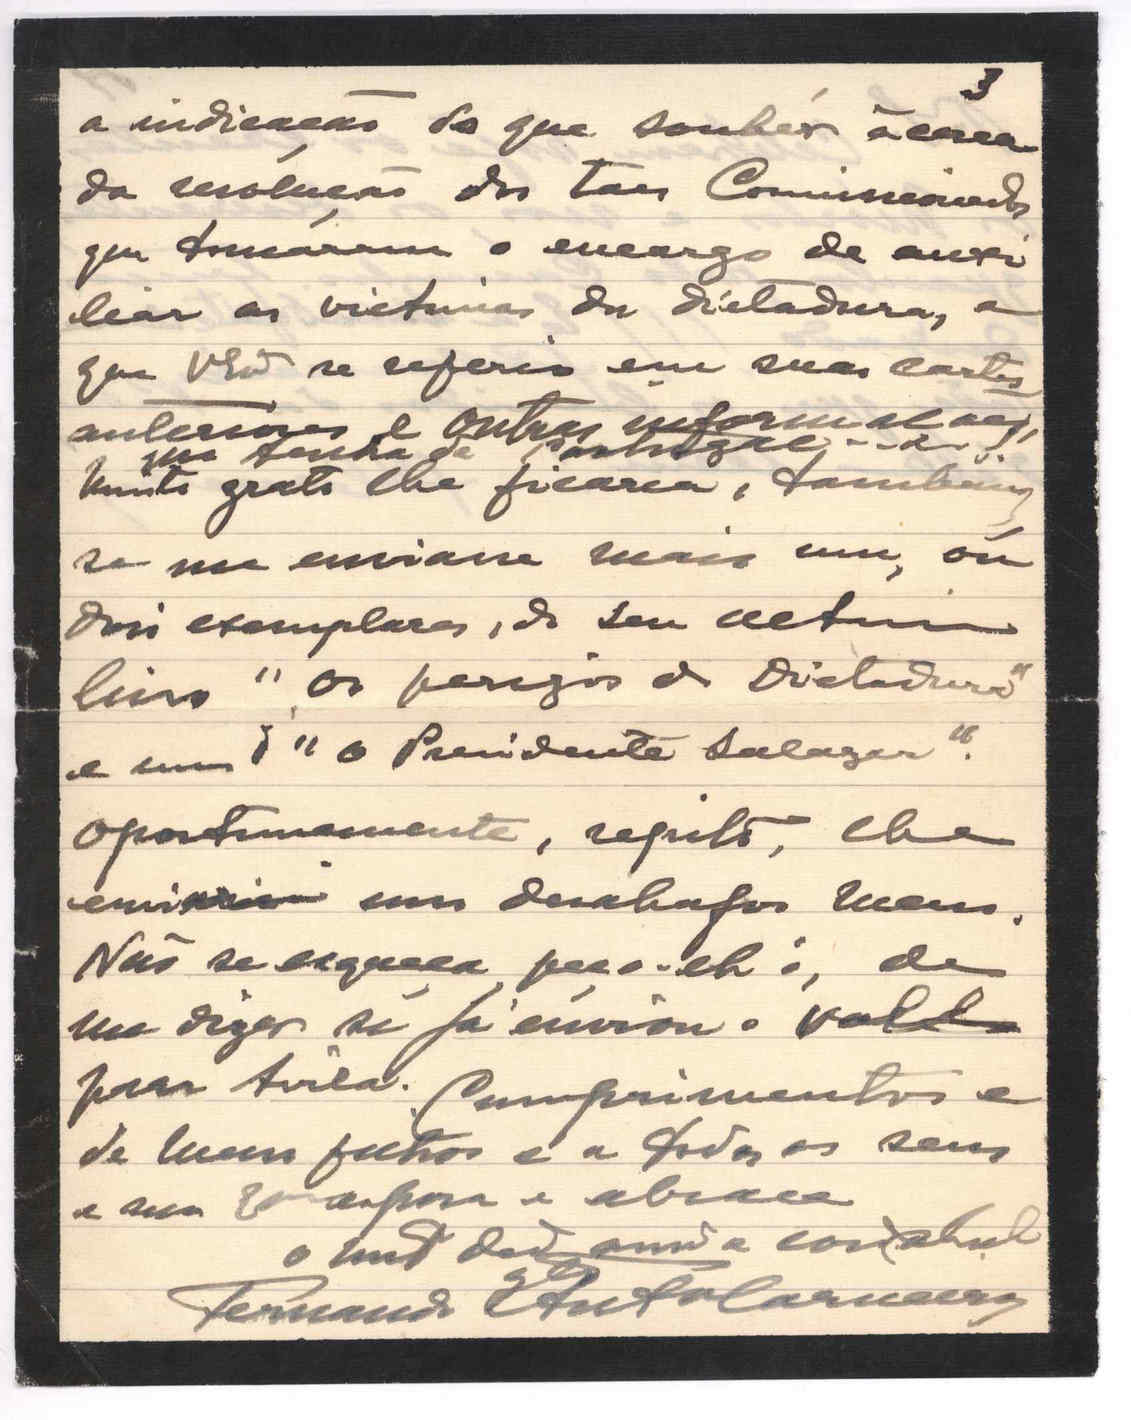 3
a indicação do que soubér ácerca
da resolução dos taes Comissionados
que tomáram o encargo de auxi
liar as victimas da dictadura, a
que VExª se referio em suas cartas
anteriores e outras informações
que tenha de Portugal
Muito grato lhe ficarea, tambem
se me enviasse mais um, ou
dois exemplares, do seu ultimo
livro "Os perigos da Dictadura"
e um "O Presidente Salazar".
Oportunamente, repito, lhe
uns desabafos meus.
Não se esqueça, peço-lh'o, de
me dizer se já enviou o
para Avila. Cumprimentos
de meus filhos e a todos os seus
e sua esposa e abraça
o
Fernando Carneiro